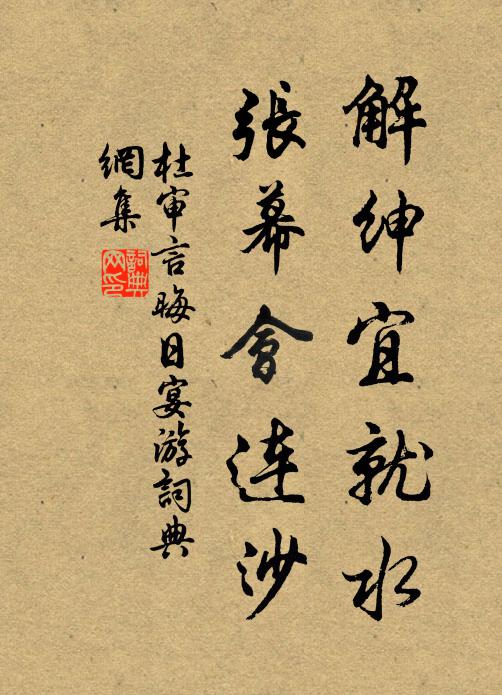 解紳宜就水
張幕會連沙
杜审言晦日宴游詞典
網集
詞典
网印